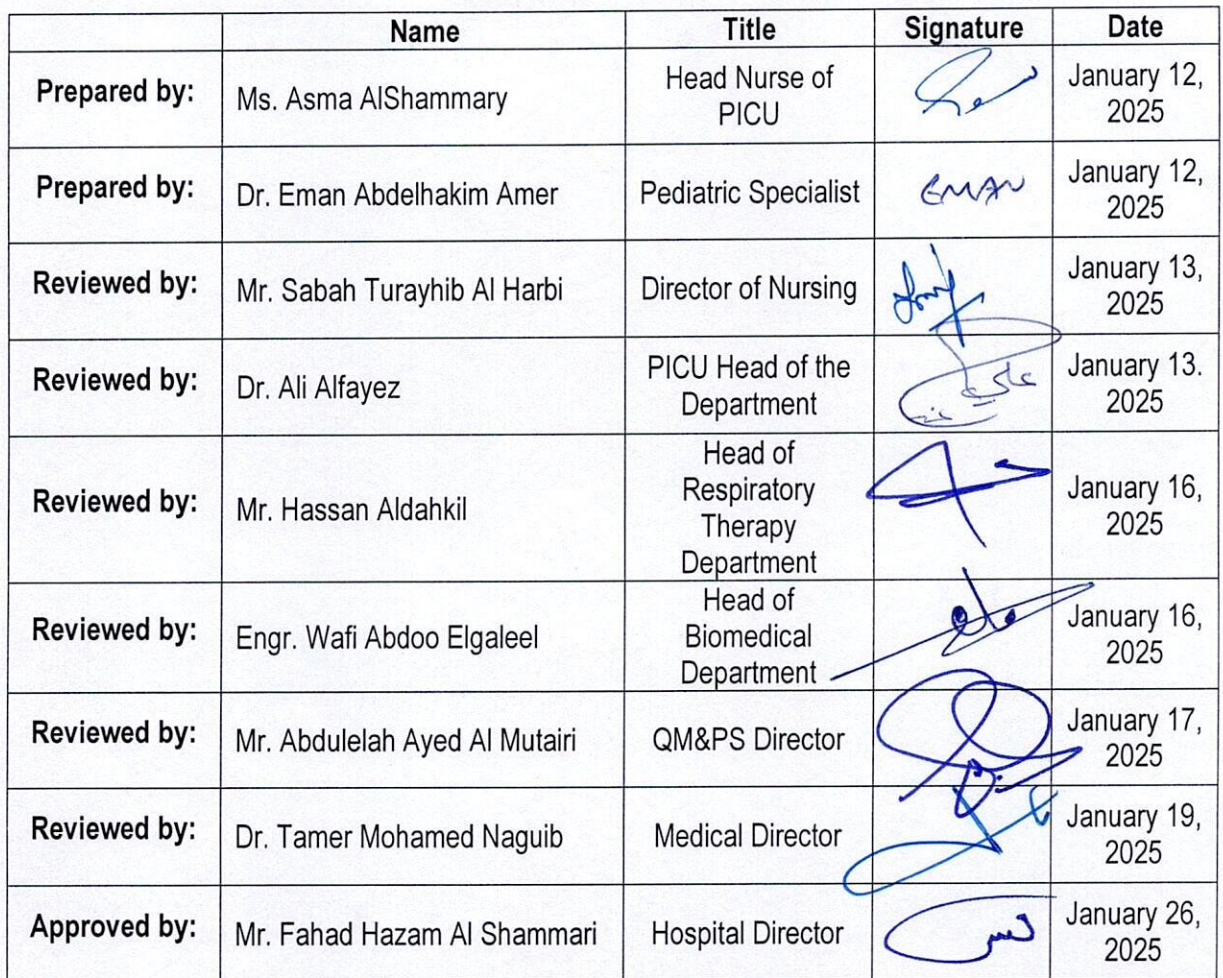 Name Title Signature Date
Prepared by: Ms. Asma AlShammary Head Nurse of PICU January 12, 2025
Prepared by: Dr. Eman Abdelhakim Amer Pediatric Specialist EMAN January 12, 2025
Reviewed by: Mr. Sabah Turayhib Al Harbi Director of Nursing January 13, 2025
Reviewed by: Dr. Ali Alfayez PICU Head of the Department January 13. 2025
Reviewed by: Mr. Hassan Aldahkil Head of Respiratory Therapy Department January 16, 2025
Reviewed by: Engr. Wafi Abdoo Elgaleel Head of Biomedical Department January 16, 2025
Reviewed by: Mr. Abdulelah Ayed Al Mutairi QM&PS Director January 17, 2025
Reviewed by: Dr. Tamer Mohamed Naguib Medical Director January 19, 2025
Approved by: Mr. Fahad Hazam Al Shammari Hospital Director January 26, 2025